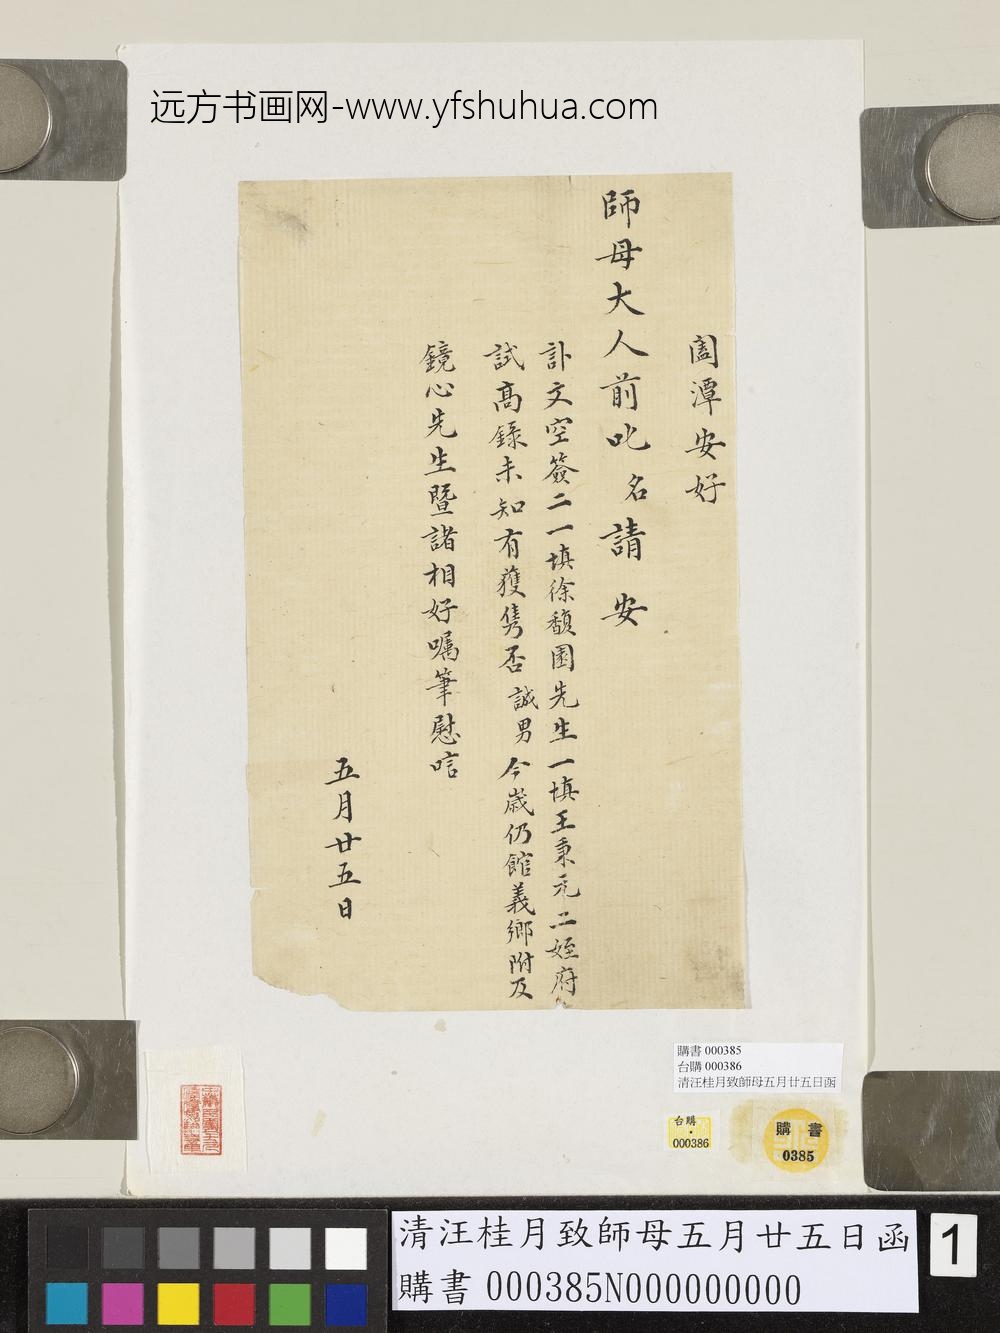 远方书画网-www.yfshuhua.com
闔潭安好
師母大人前叱名請安
訃文空簽二一填徐馥園先生一填王秉元二姪府
試高錄未知有獲雋否誠男今歲仍館義鄉附及
鏡心先生暨諸相好囑筆慰唁
五月廿五日
購書 000385
台購 000386
清汪桂月致師母五月廿五日函
台購
000386
購書
0385
清汪桂月致師母五月廿五日函
購書 000385N000000000
1